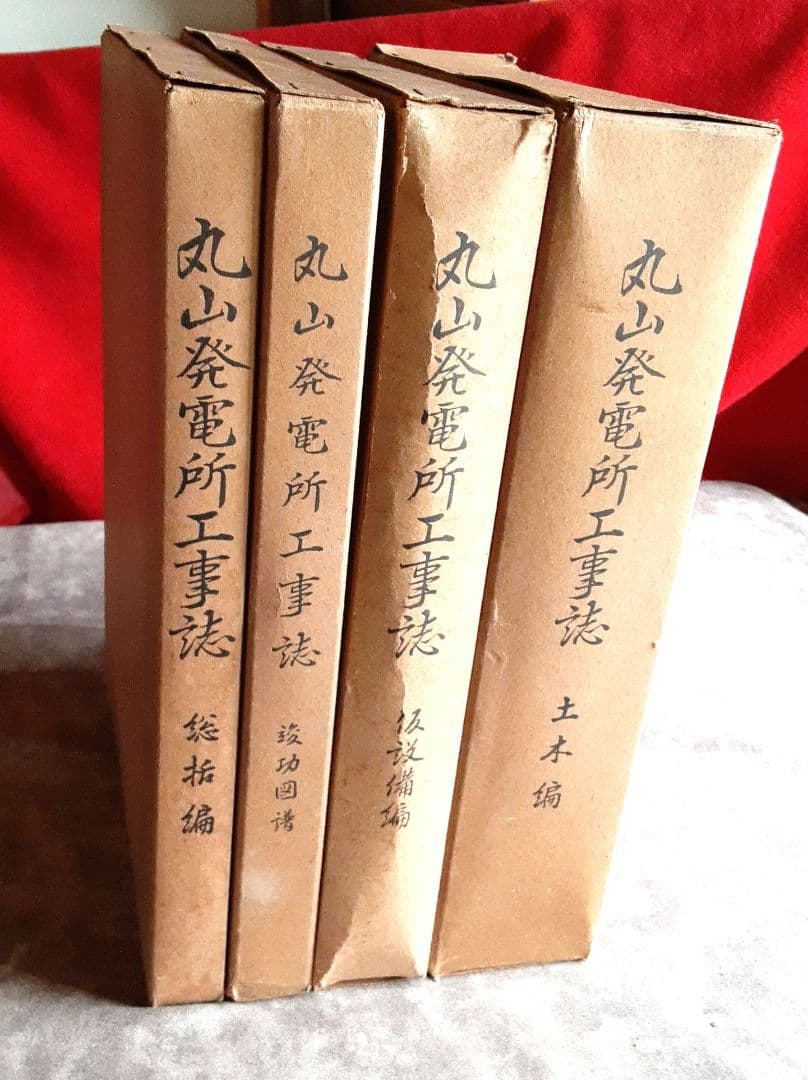 丸山発電所工事誌 総括編
丸山発電所工事誌 竣功図譜
丸山発電所工事誌 仮設備編
丸山発電所工事誌 土木編